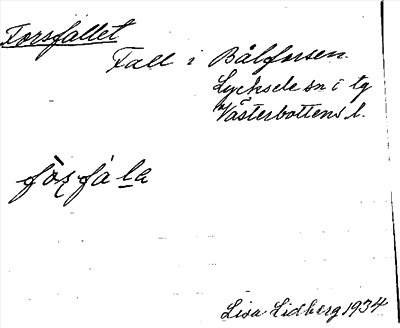 Forsfallet
Fall i Bålforsen
Lycksele sn i tg
Västerbottens l.
Lisa Lidberg 1934